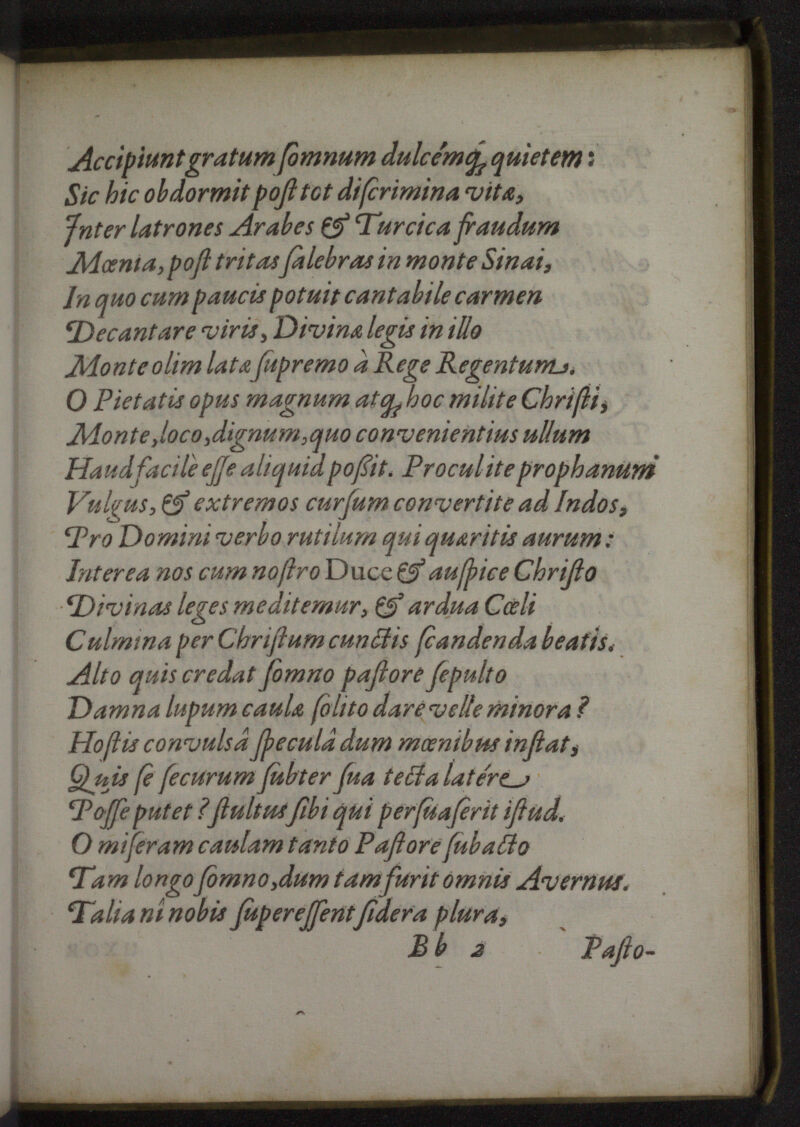 Accipiunt gratum ſomnum dulcémq́; quietem:
Sic hic obdormit poſt tot diſcrimina vitæ,
Inter latrones Arabes & Turcica fraudum
Mœnia, poſt tritas ſalebras in monte Sinai,
In quo cum paucis potuit cantabile carmen
Decantare viris, Divinæ legis in illo
Monte olim latæ ſupremo à Rege Regentum.
O Pietatis opus magnum atq; hoc milite Chriſti,
Monte, loco, dignum, quo convenientius ullum
Haud facilè eſſe aliquid poßit. Procul ite prophanum
Vulgus, & extremos curſum convertite ad Indos,
Pro Domini verbo rutilum qui quæritis aurum:
Interea nos cum noſtro Duce & auſpice Chriſto
Divinas leges meditemur, & ardua Cœli
Culmina per Chriſtum cunctis ſcandenda beatis.
Alto quis credat ſomno paſtore ſepulto
Damna lupum caulæ ſolito dare velle minora?
Hoſtis convulsâ ſpeculâ dum mœnibus inſtat,
Quis ſe ſecurum ſubter ſua tecta latére
Poſſe putet? ſtultus ſibi qui perſuaſerit iſtud.
O miſeram caulam tanto Paſtore ſubacto
Tam longo ſomno, dum tam furit omnis Avernus.
Talia nî nobis ſupereſſent ſidera plura,
Bb 2 Paſto-